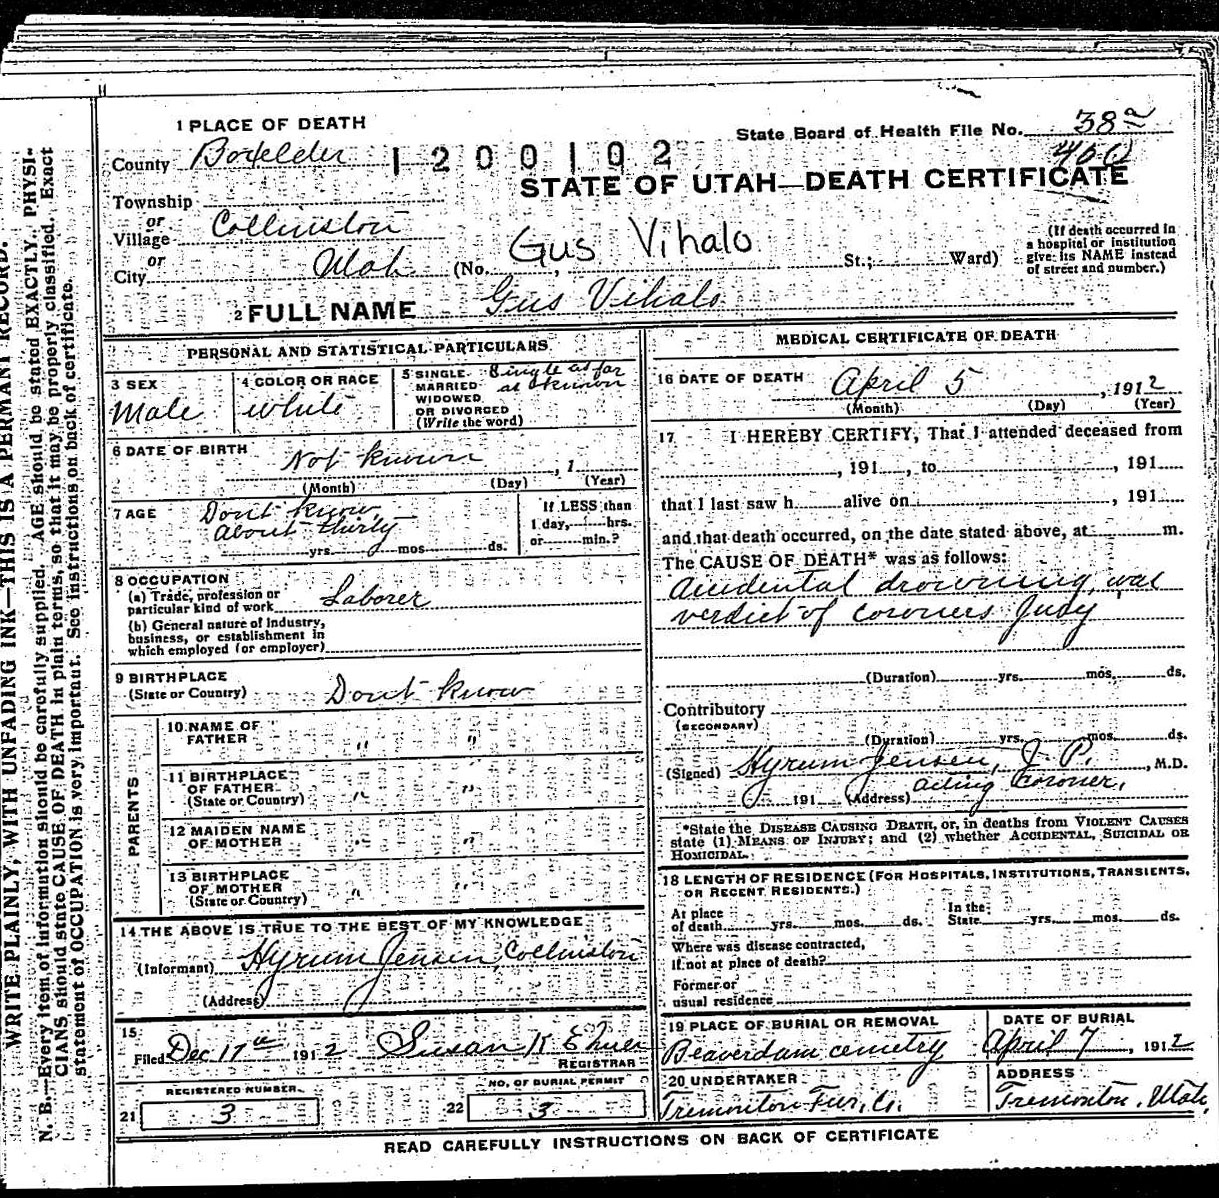 WRITE PLAINLY, WITH UNFADING INK—THIS IS A PERMANT RECORD.
N. B.—Every item of information should be carefully supplied. AGE should be stated EXACTLY. PHYSI-
CIANS should state CAUSE OF DEATH in plain terms, so that it may be properly classified. Exact
statement of OCCUPATION is very important. See instructions on back of certificate.
1 PLACE OF DEATH
State Board of Health File No. 38a
County Boxelder 1200102 400
STATE OF UTAH—DEATH CERTIFICATE
Township
or
Village Collinston
or
City Utah (No. Gus Vihalo St.; Ward)
(If death occurred in
a hospital or institution
give its NAME instead
of street and number.)
2 FULL NAME Gus Vihalo
PERSONAL AND STATISTICAL PARTICULARS
3 SEX
Male
4 COLOR OR RACE
White
5 SINGLE. Single as far
MARRIED as known
WIDOWED
OR DIVORCED
(Write the word)
6 DATE OF BIRTH
Not known , 1
(Month) (Day) (Year)
7 AGE Dont know
About thirty
yrs. mos. ds.
If LESS than
1 day, hrs.
or min.?
8 OCCUPATION
(a) Trade, profession or
particular kind of work Laborer
(b) General nature of Industry,
business, or establishment in
which employed (or employer)
9 BIRTHPLACE
(State or Country) Dont know
PARENTS
10 NAME OF
FATHER " "
11 BIRTHPLACE
OF FATHER
(State or Country) " "
12 MAIDEN NAME
OF MOTHER " "
13 BIRTHPLACE
OF MOTHER
(State or Country) " "
14 THE ABOVE IS TRUE TO THE BEST OF MY KNOWLEDGE
(Informant) Hyrum Jensen, Collinston
(Address)
15
Filed Dec 17th 1912 Susan K
REGISTRAR
REGISTERED NUMBER
21 3
NO. OF BURIAL PERMIT
22 3
MEDICAL CERTIFICATE OF DEATH
16 DATE OF DEATH April 5 , 1912
(Month) (Day) (Year)
17 I HEREBY CERTIFY, That I attended deceased from
, 191 , to , 191
that I last saw h alive on , 191
and that death occurred, on the date stated above, at m.
The CAUSE OF DEATH* was as follows:
Accidental drowning, was
verdict of coroners Judy
(Duration) yrs. mos. ds.
Contributory
(SECONDARY)
(Duration) yrs. mos. ds.
(Signed) Hyrum Jensen, J. P. , M.D.
191 (Address) acting Coroner.
*State the DISEASE CAUSING DEATH, or, in deaths from VIOLENT CAUSES
state (1) MEANS OF INJURY; and (2) whether ACCIDENTAL, SUICIDAL OR
HOMICIDAL.
18 LENGTH OF RESIDENCE (FOR HOSPITALS, INSTITUTIONS, TRANSIENTS,
OR RECENT RESIDENTS.)
At place
of death yrs. mos. ds.
In the
State yrs. mos. ds.
Where was disease contracted,
if not at place of death?
Former or
usual residence
19 PLACE OF BURIAL OR REMOVAL
Beaverdam cemetry
DATE OF BURIAL
April 7 , 1912
20 UNDERTAKER
Tremonton Fur. Co.
ADDRESS
Tremonton, Utah,
READ CAREFULLY INSTRUCTIONS ON BACK OF CERTIFICATE